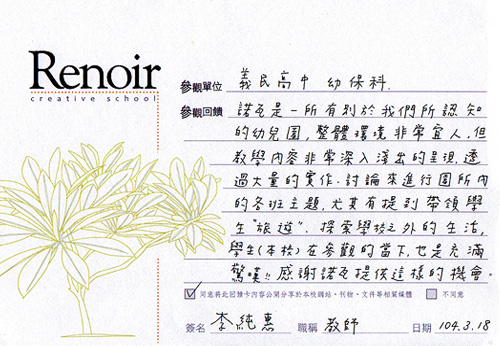 Renoir
creative school
參觀單位 義民高中 幼保科.
參觀回饋 諾瓦是一所有別於我們所認知
的幼兒園,整體環境非常宜人,但
教學內容非常深入淺出的呈現,透
過大量的實作、討論來進行園所內
的各班主題,尤其有提到帶領學
生"旅遊"、探索學校之外的生活,
學生(本校)在參觀的當下,也是充滿
驚嘆!! 感謝諾瓦提供這樣的機會。
同意將此回饋卡內容公開分享於本校網站、刊物、文件等相關媒體 不同意
簽名 李純惠 職稱 教師 日期 104.3.18